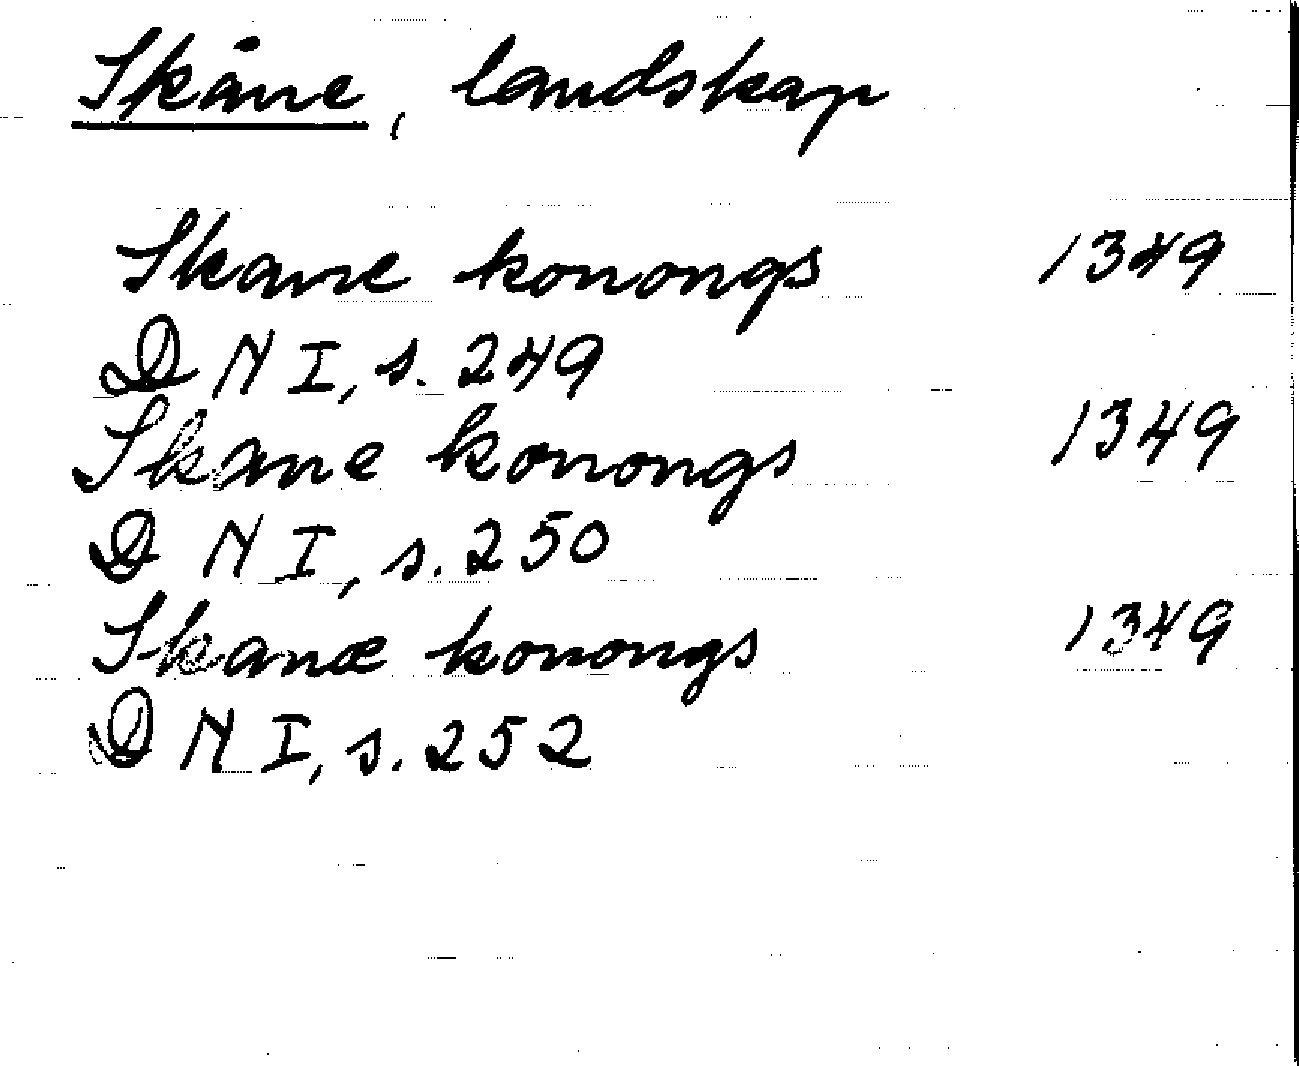 Skåne, landskap
Skane konongs 1349
D N I, s. 249
Skane konongs 1349
D N I, s. 250
Skanæ konongs 1349
D N I, s. 252